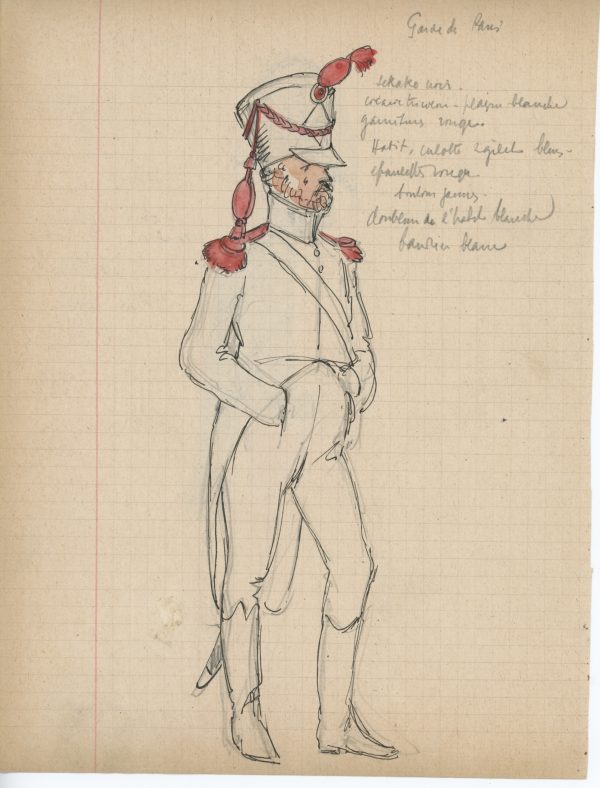 Garde de Paris
schako noir.
cocarde tricolore - plaque blanche
garnitures rouges.
Habit, culotte & gilet bleus -
épaulettes rouges
boutons jaunes.
doublure de l'habit blanche
baudrier blanc